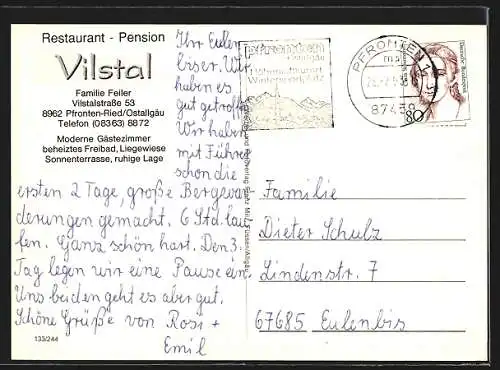 Restaurant - Pension
Vilstal
Familie Feller
Vilstalstraße 53
8962 Pfronten-Ried/Ostallgäu
Telefon (08363) 8872
Moderne Gästezimmer
beheiztes Freibad, Liegewiese
Sonnenterrasse, ruhige Lage
Ihr Eulen
biser. Wir
haben es
gut getroffen
Wir haben
mit Führer
schon die
ersten 2 Tage, große Bergwan
derungen gemacht. 6 Std. lau
fen. Ganz schön hart. Den 3.
Tag legen wir eine Pause ein.
Uns beiden geht es aber gut.
Schöne Grüße von Rosi +
Emil
133/244
Pfronten
Ostallgäu
Höhenluftkurort
Wintersportplatz
PFRONTEN 1
87459
80
Familie
Dieter Schulz
Lindenstr. 7
67685 Eulenbis